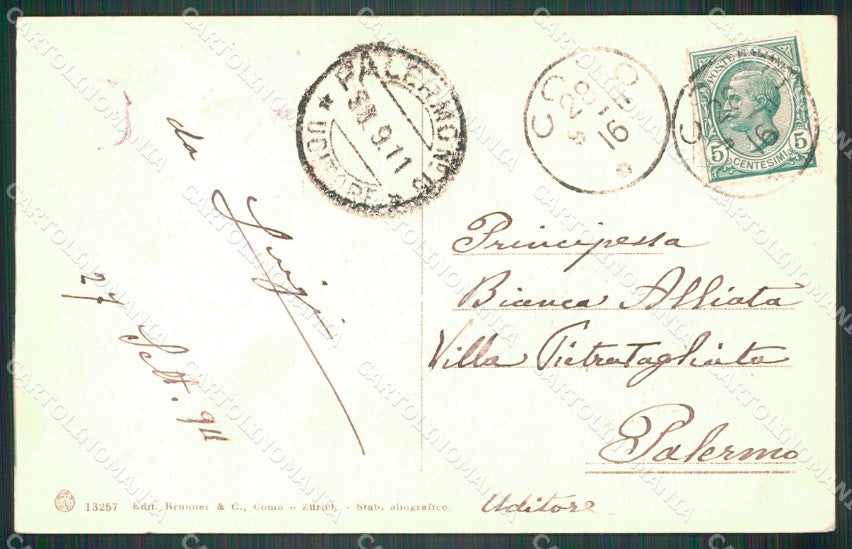 da
Luigi
27 Sett. 911
PALERMO
UDITORE
9.11
COMO
28 9
16
POSTE ITALIANE
5 CENTESIMI 5
Principessa
Bianca Alliata
Villa Pietratagliata
Palermo
Uditore
13257 Edit. Brunner & C., Como e Zürich. - Stab. eliografico.
CARTOLINOMANIA